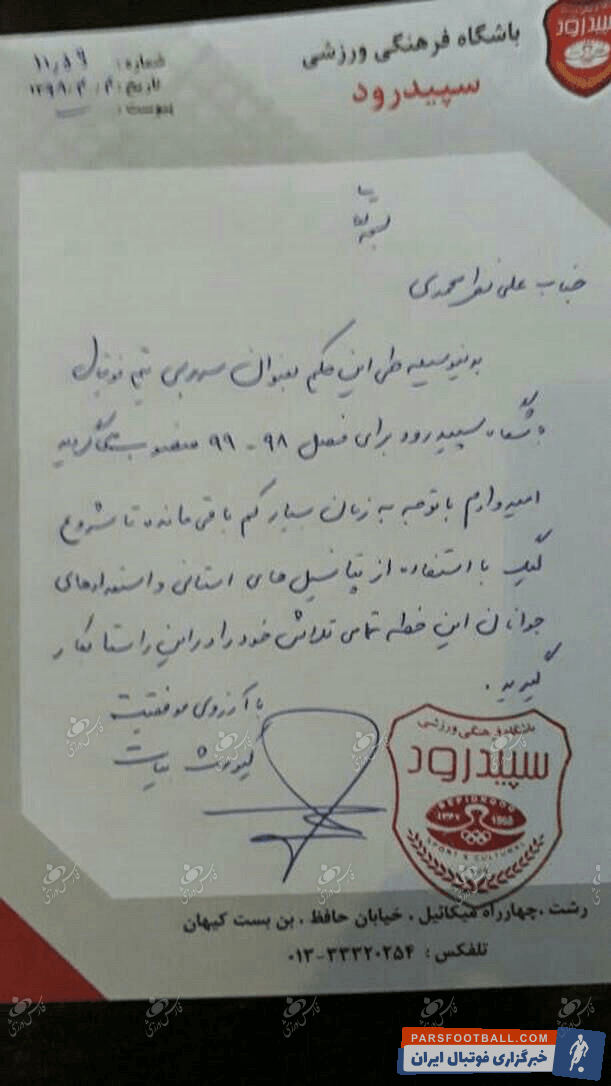 باشگاه فرهنگی ورزشی
سپیدرود
سپیدرود
شماره: ۱۱,۵۶
تاریخ: ۱۳۹۸/۴/۴
پیوست:
بسمه تعالی
جناب علی نظرمحمدی
بدینوسیله طی این حکم بعنوان سرمربی تیم فوتبال
باشگاه سپیدرود برای فصل ۹۸-۹۹ منصوب میگردید
امیدوارم با توجه به زمان بسیار کم باقی مانده تا شروع
لیگ با استفاده از پتانسیل های استانی و استعدادهای
جوانان این خطه تمامی تلاش خود را در این راستا بکار
گیرید.
با آرزوی موفقیت
کیومرث بیات
باشگاه فرهنگی ورزشی
سپیدرود
SEPIDROOD
۱۳۴۷ 1968
SPORT & CULTURAL
رشت ، چهارراه میکائیل ، خیابان حافظ ، بن بست کیهان
تلفکس : ۰۱۳-۳۳۳۲۰۲۵۴
PARSFOOTBALL.COM
خبرگزاری فوتبال ایران